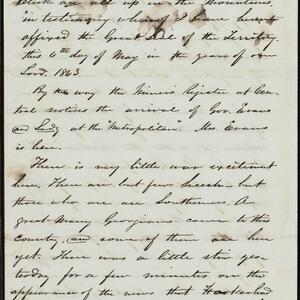 are all up in the Mountains,
in testimony whereof I have hereto
affixed the Great Seal of the Territory,
this 10th day of May in the year of our
Lord. 1863.
By the way the Miners Register at Cen-
tral notices the arrival of Gov. Evans
and Lady at the "Metropolitan". Mrs. Evans
is here.
There is very little war excitement
here. There are but few Secesh – but
those who are are Southerners. A
great many Georgians come to this
Country, and some of them are here
yet. There was a little stir yes-
terday for a few minutes on the
appearance of the news that